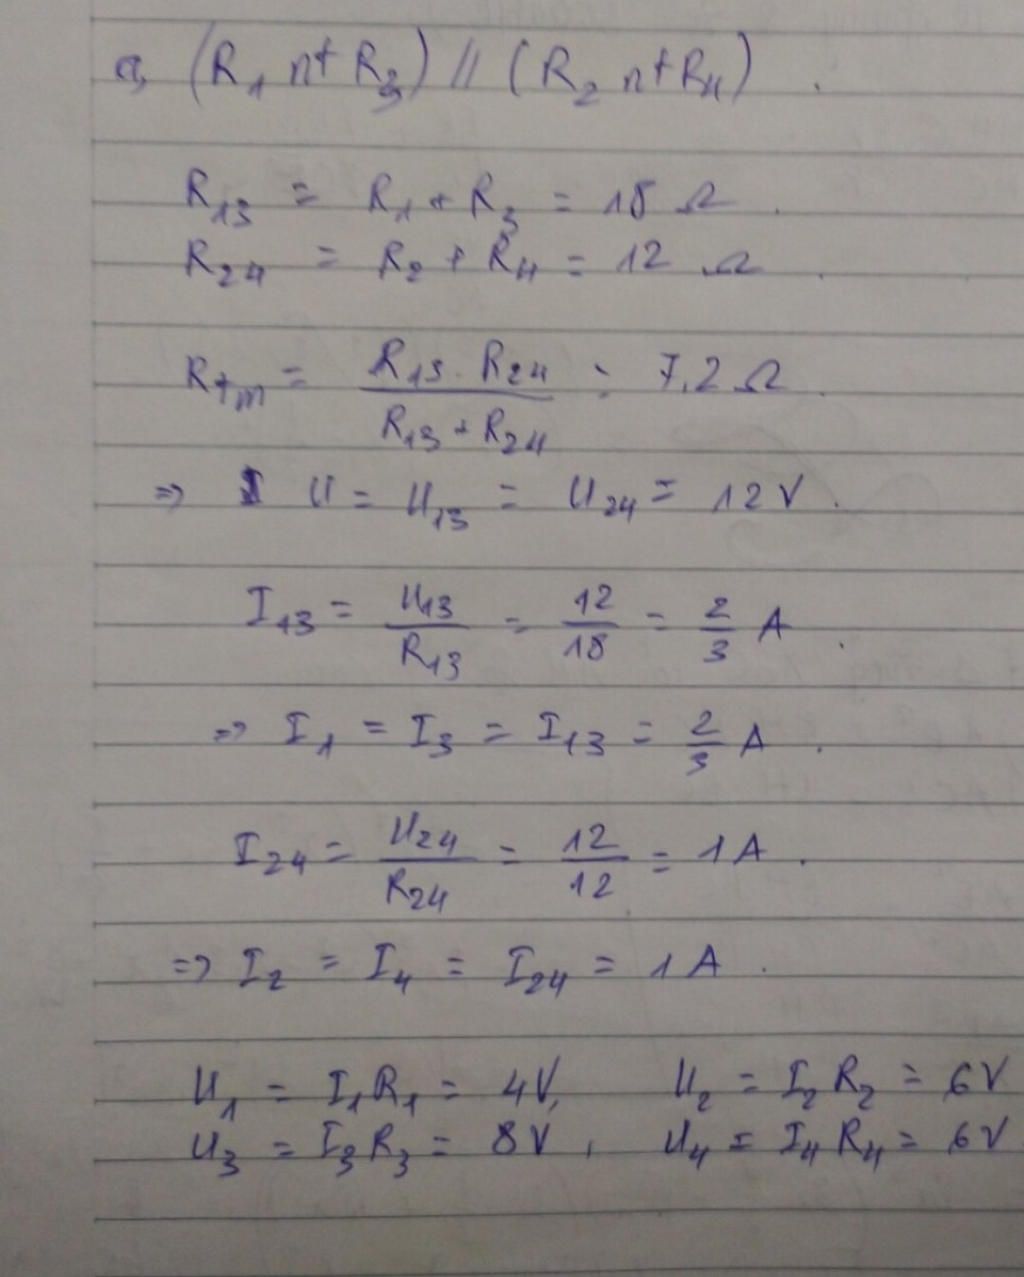 a, (R₁ nt R₃) // (R₂ nt R₄)
R₁₃ = R₁ + R₃ = 18 Ω
R₂₄ = R₂ + R₄ = 12 Ω
Rtm = (R₁₃ . R₂₄) / (R₁₃ + R₂₄) = 7,2 Ω
=> U = U₁₃ = U₂₄ = 12 V.
I₁₃ = U₁₃ / R₁₃ = 12 / 18 = 2/3 A
=> I₁ = I₃ = I₁₃ = 2/3 A.
I₂₄ = U₂₄ / R₂₄ = 12 / 12 = 1 A.
=> I₂ = I₄ = I₂₄ = 1 A.
U₁ = I₁R₁ = 4V, U₂ = I₂R₂ = 6V
U₃ = I₃R₃ = 8V, U₄ = I₄R₄ = 6V